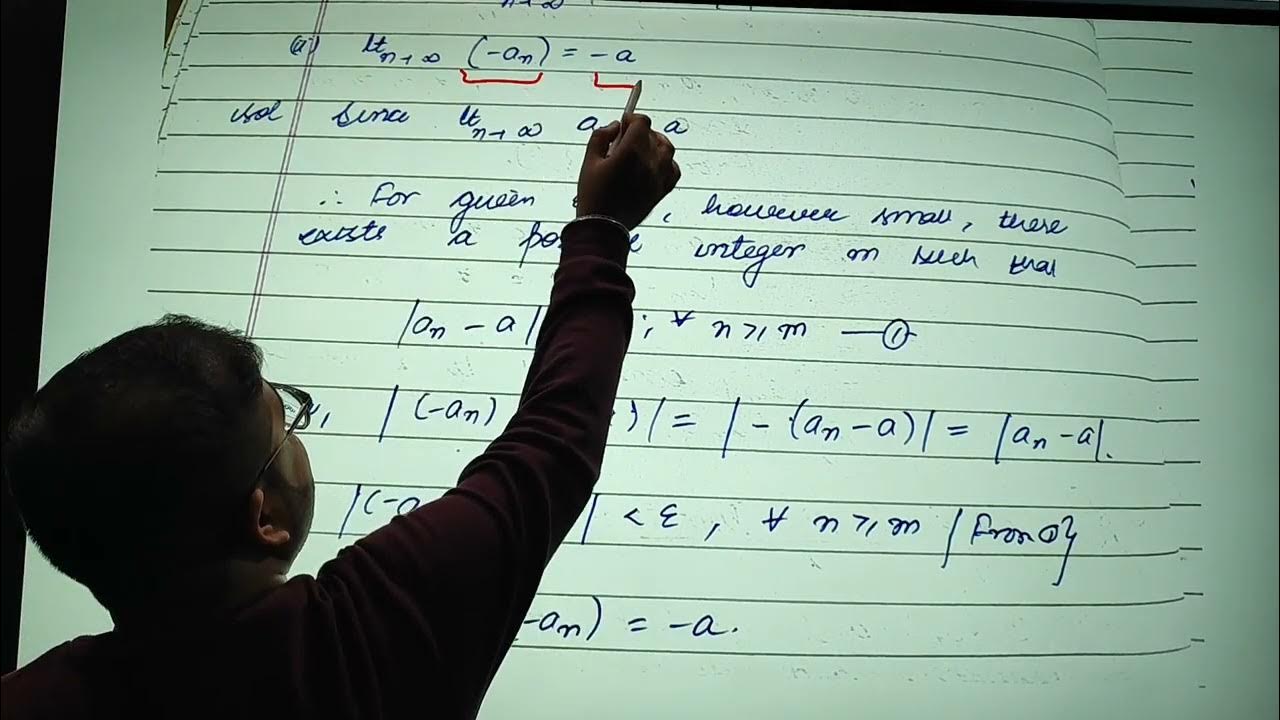 n→∞
(a) lt n→∞ (-aₙ) = -a
sol Since lt n→∞ a a
∴ For given , however small, there
exists a integer m such that
|aₙ - a| ; ∀ n ≥ m — ①
|(-aₙ) )| = |-(aₙ-a)| = |aₙ-a|.
|(-a | < ε , ∀ n ≥ m {From ①}
-aₙ) = -a.